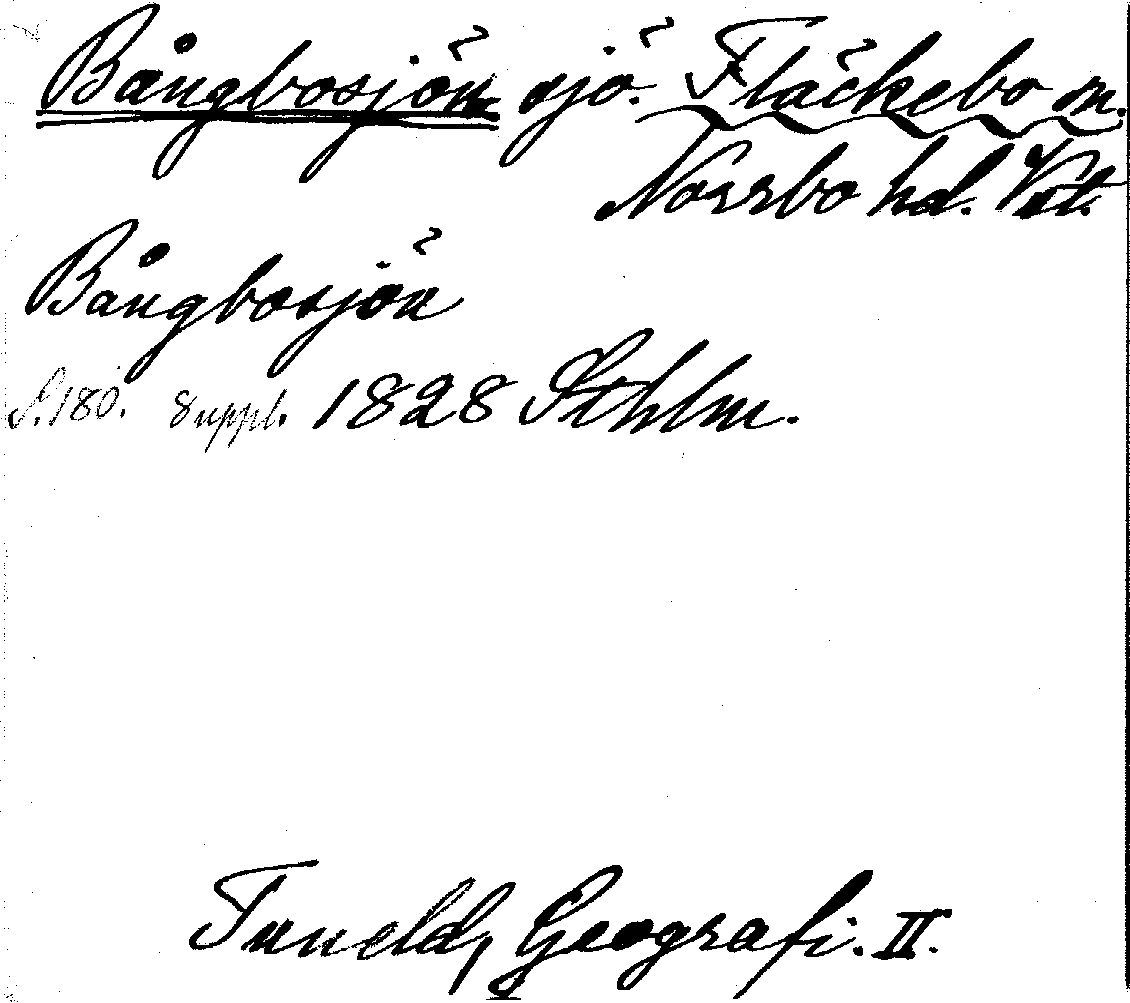 Bångbosjön sjö. Fläckebo sn.
Norrbo hd. Vstl.
Bångbosjön
S. 180. Suppl. 1828 Sthlm.
Tuneld, Geografi. II.